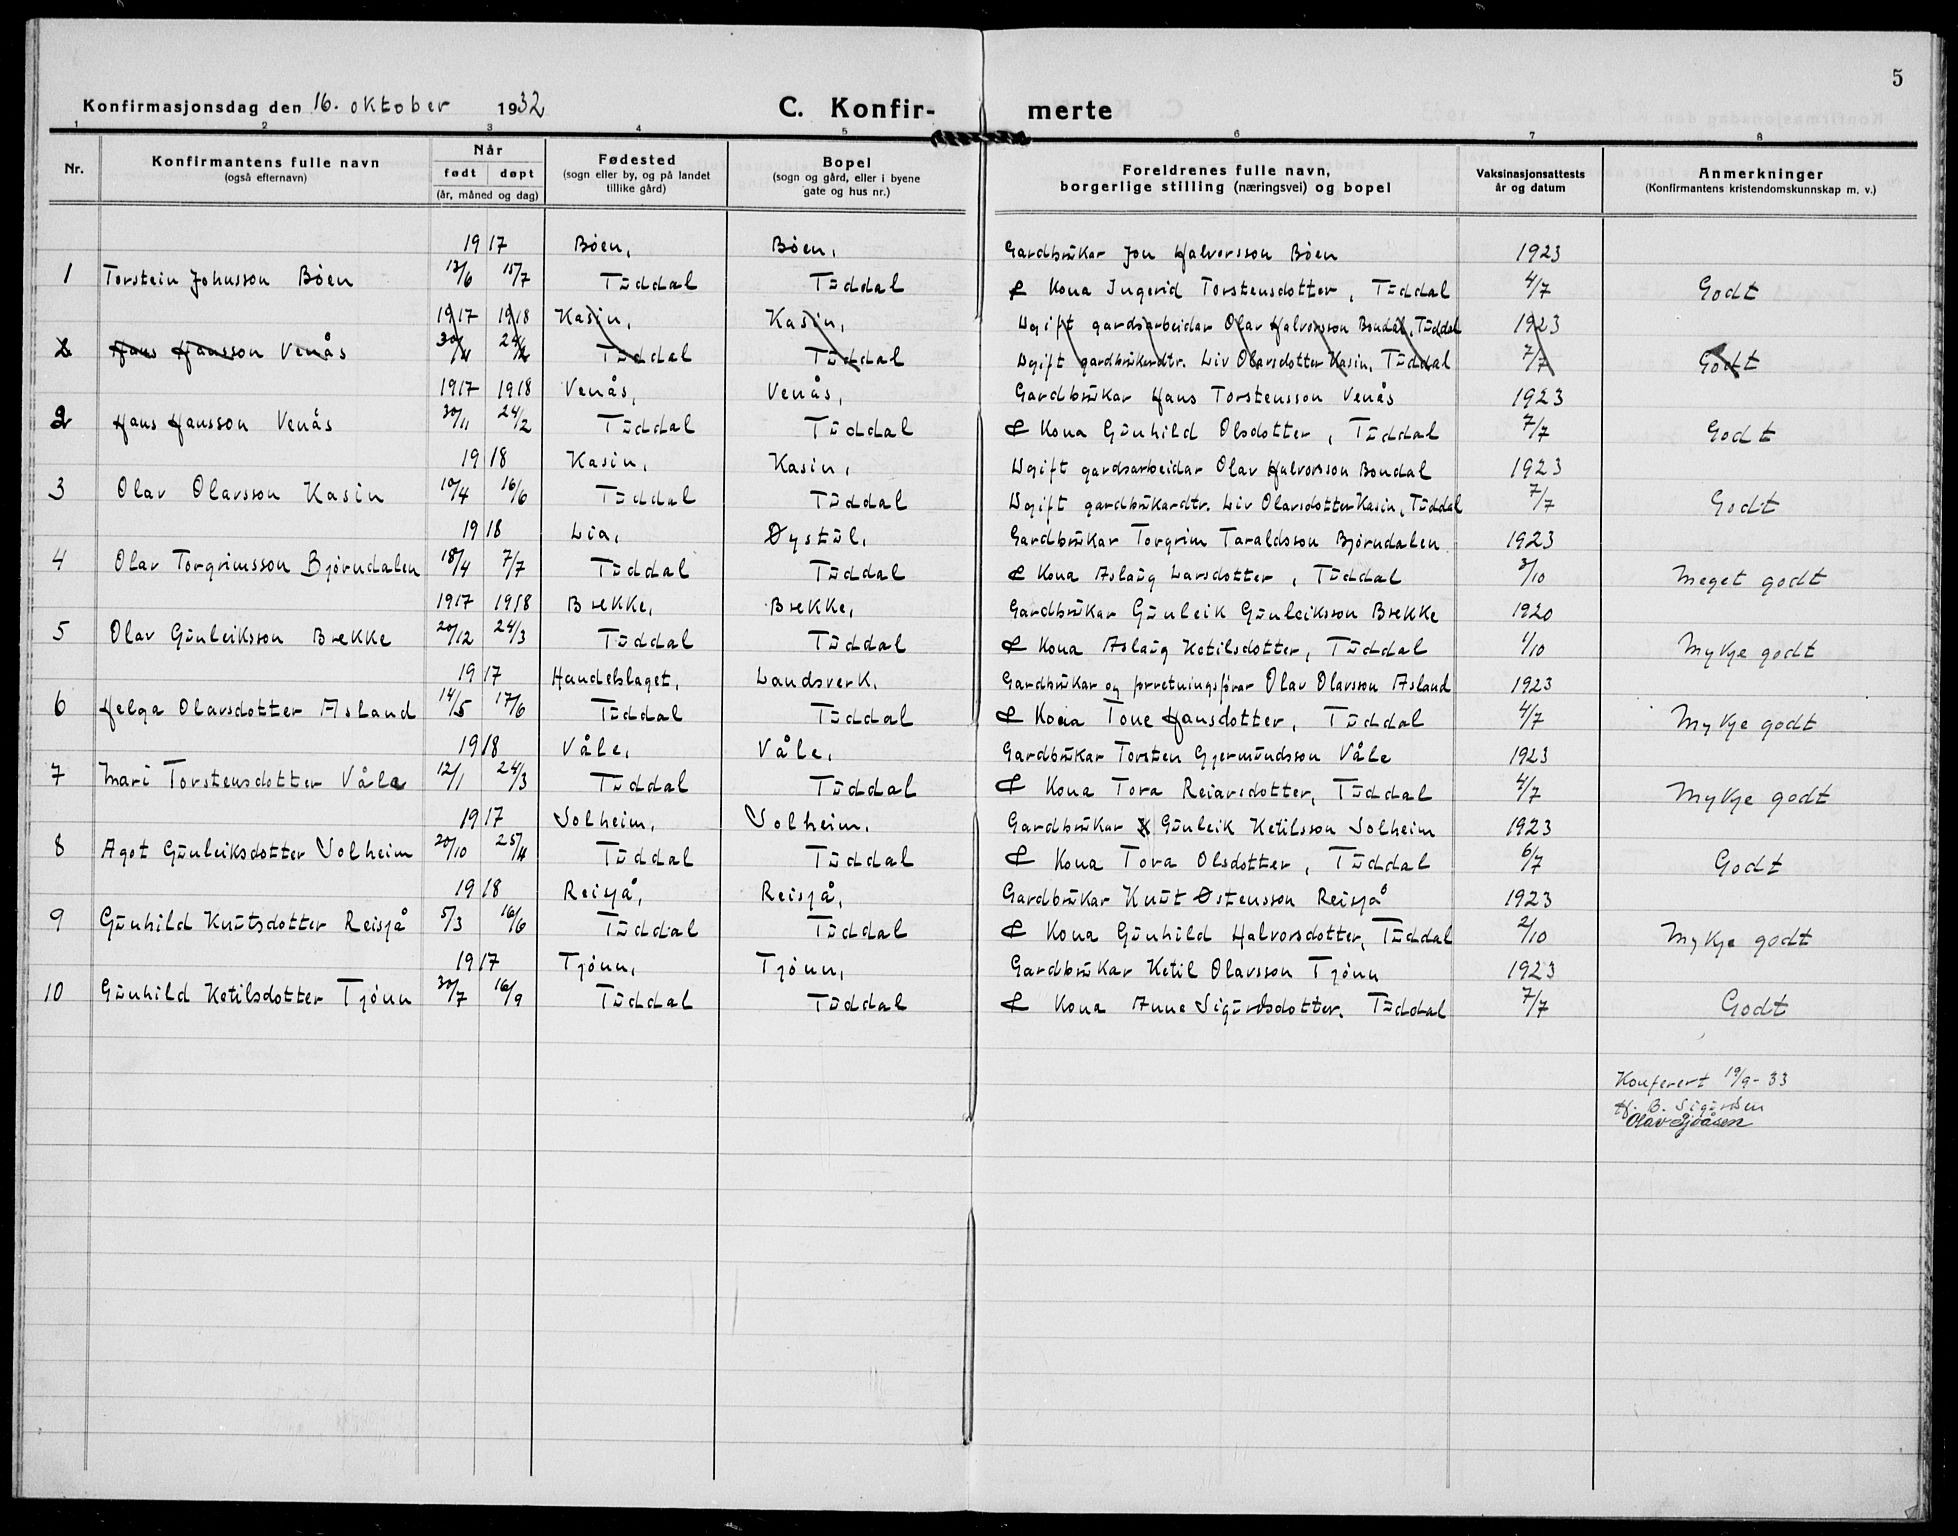 5
Konfirmasjonsdag den 16. oktober 1932 C. Konfir- merte
1 2 3 4 5 6 7 8
Nr. Konfirmantens fulle navn (også efternavn) Når født døpt (år, måned og dag) Fødested (sogn eller by, og på landet tillike gård) Bopel (sogn og gård, eller i byene gate og hus nr.) Foreldrenes fulle navn, borgerlige stilling (næringsvei) og bopel Vaksinasjonsattests år og datum Anmerkninger (Konfirmantens kristendomskunnskap m. v.)
1917 Bøen, Bøen, Gardbrukar Jon Halvorsson Bøen 1923
1 Torstein Johnsson Bøen 13/6 15/7 Tuddal Tuddal & Kona Ingerid Torstensdotter, Tuddal 4/7 Godt
1917 1918 Kasin, Kasin, Ugift gardsarbeidar Olav Halvorsson Bondal, Tuddal 1923
2 Hans Hansson Venås 30/11 24/2 Tuddal Tuddal Ugift gardbrukardtr. Liv Olavsdotter Kasin, Tuddal 7/7 Godt
1917 1918 Venås, Venås, Gardbrukar Hans Torstensson Venås 1923
2 Hans Hansson Venås 30/11 24/2 Tuddal Tuddal & Kona Gunhild Olsdotter, Tuddal 7/7 Godt
1918 Kasin, Kasin, Ugift gardsarbeidar Olav Halvorsson Bondal 1923
3 Olav Olavsson Kasin 10/4 16/6 Tuddal Tuddal Ugift gardbrukardtr. Liv Olavsdotter Kasin, Tuddal 7/7 Godt
1918 Lia, Øystul, Gardbrukar Torgrim Taraldsson Bjørndalen 1923
4 Olav Torgrimsson Bjørndalen 18/4 7/7 Tuddal Tuddal & Kona Aslaug Larsdotter, Tuddal 3/10 Meget godt
1917 1918 Brekke, Brekke, Gardbrukar Gunleik Gunleiksson Brekke 1920
5 Olav Gunleiksson Brekke 20/12 24/3 Tuddal Tuddal & Kona Aslaug Ketilsdotter, Tuddal 1/10 Mykje godt
1917 Handelslaget, Landsverk, Gardbrukar og forretningsførar Olav Olavsson Asland 1923
6 Helga Olavsdotter Asland 14/5 17/6 Tuddal Tuddal & Kona Tone Hansdotter, Tuddal 4/7 Mykje godt
1918 Våle, Våle, Gardbrukar Torsten Gjermundsson Våle 1923
7 Mari Torstensdotter Våle 12/1 24/3 Tuddal Tuddal & Kona Tora Reiarsdotter, Tuddal 4/7 Mykje godt
1917 Solheim, Solheim, Gardbrukar Gunleik Ketilsson Solheim 1923
8 Agot Gunleiksdotter Solheim 20/10 25/4 Tuddal Tuddal & Kona Tora Olsdotter, Tuddal 6/7 Godt
1918 Reisjå, Reisjå, Gardbrukar Knut Østensson Reisjå 1923
9 Gunhild Knutsdotter Reisjå 5/3 16/6 Tuddal Tuddal & Kona Gunhild Halvorsdotter, Tuddal 2/10 Mykje godt
1917 Tjønn, Tjønn, Gardbrukar Ketil Olavsson Tjønn 1923
10 Gunhild Ketilsdotter Tjønn 30/7 16/9 Tuddal Tuddal & Kona Anne Sigurdsdotter, Tuddal 7/7 Godt
Konferert 19/9-33
H. B. Sigurdsen
Olav Sjåsen